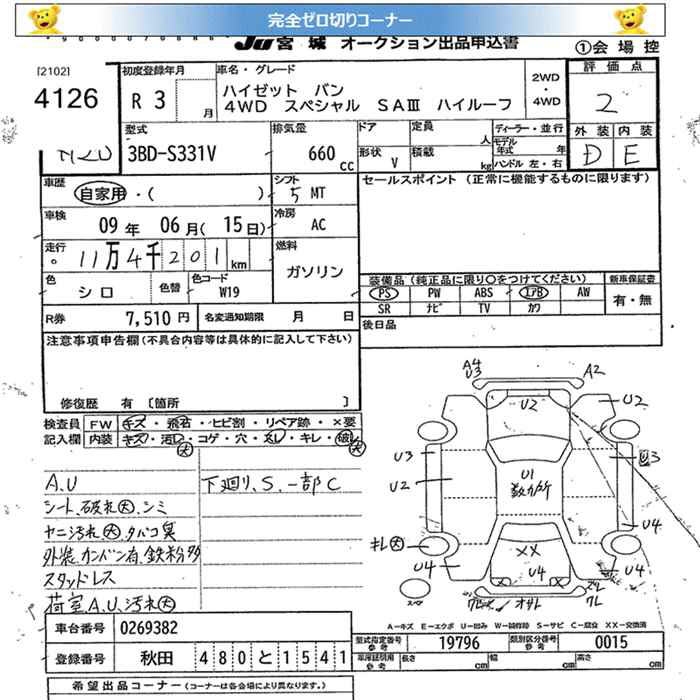 完全ゼロ切りコーナー
JU宮城 オークション出品申込書
①会場控
[2102]
4126
初度登録年月
R 3 月
車名・グレード
ハイゼット バン
4WD スペシャル SAⅢ ハイルーフ
2WD
・
4WD
評価点
2
外装 内装
D E
型式
3BD-S331V
排気量
660 cc
ドア
形状 V
定員 人
積載 kg
ディーラー・並行
モデル年式 年
ハンドル 左・右
車歴
自家用・( )
シフト
5 MT
セールスポイント (正常に機能するものに限ります)
車検
09 年 06 月( 15 日)
冷房
AC
走行
11万4千201 km
燃料
ガソリン
色
シロ
色替
色コード
W19
装備品(純正品に限り○をつけてください)
PS PW ABS エアB AW
SR ナビ TV カワ
新車保証書
有・無
R券 7,510 円
名変通知期限 月 日
後日品
注意事項申告欄(不具合内容等は具体的に記入して下さい)
修復歴 有 〔箇所 〕
検査員記入欄
FW キズ・飛石・ヒビ割・リペア跡・×要
内装 キズ・汚レ・コゲ・穴・スレ・キレ・破レ
大 大
A.U
シート、破れ大、シミ
ヤニ汚れ大、タバコ臭
外装、カンバン有、鉄粉多
スタッドレス
荷室、A.U、汚れ大
下廻り、S、一部C
A4
U3
A2
U2
U2
U3
U2
U1
数カ所
U3
U4
キレ大
U4
××
U4
U4
スペ
オサレ
ワレ
A-キズ E-エクボ U-凹み W-補修跡 S-サビ C-腐食 XX-交換済
車台番号 0269382
登録番号 秋田 480 と 1541
型式指定番号 参考 19796
類別区分番号 参考 0015
車庫証明用 参考 長さ cm 幅 cm 高さ cm
希望出品コーナー (コーナーは各会場により異なります。)